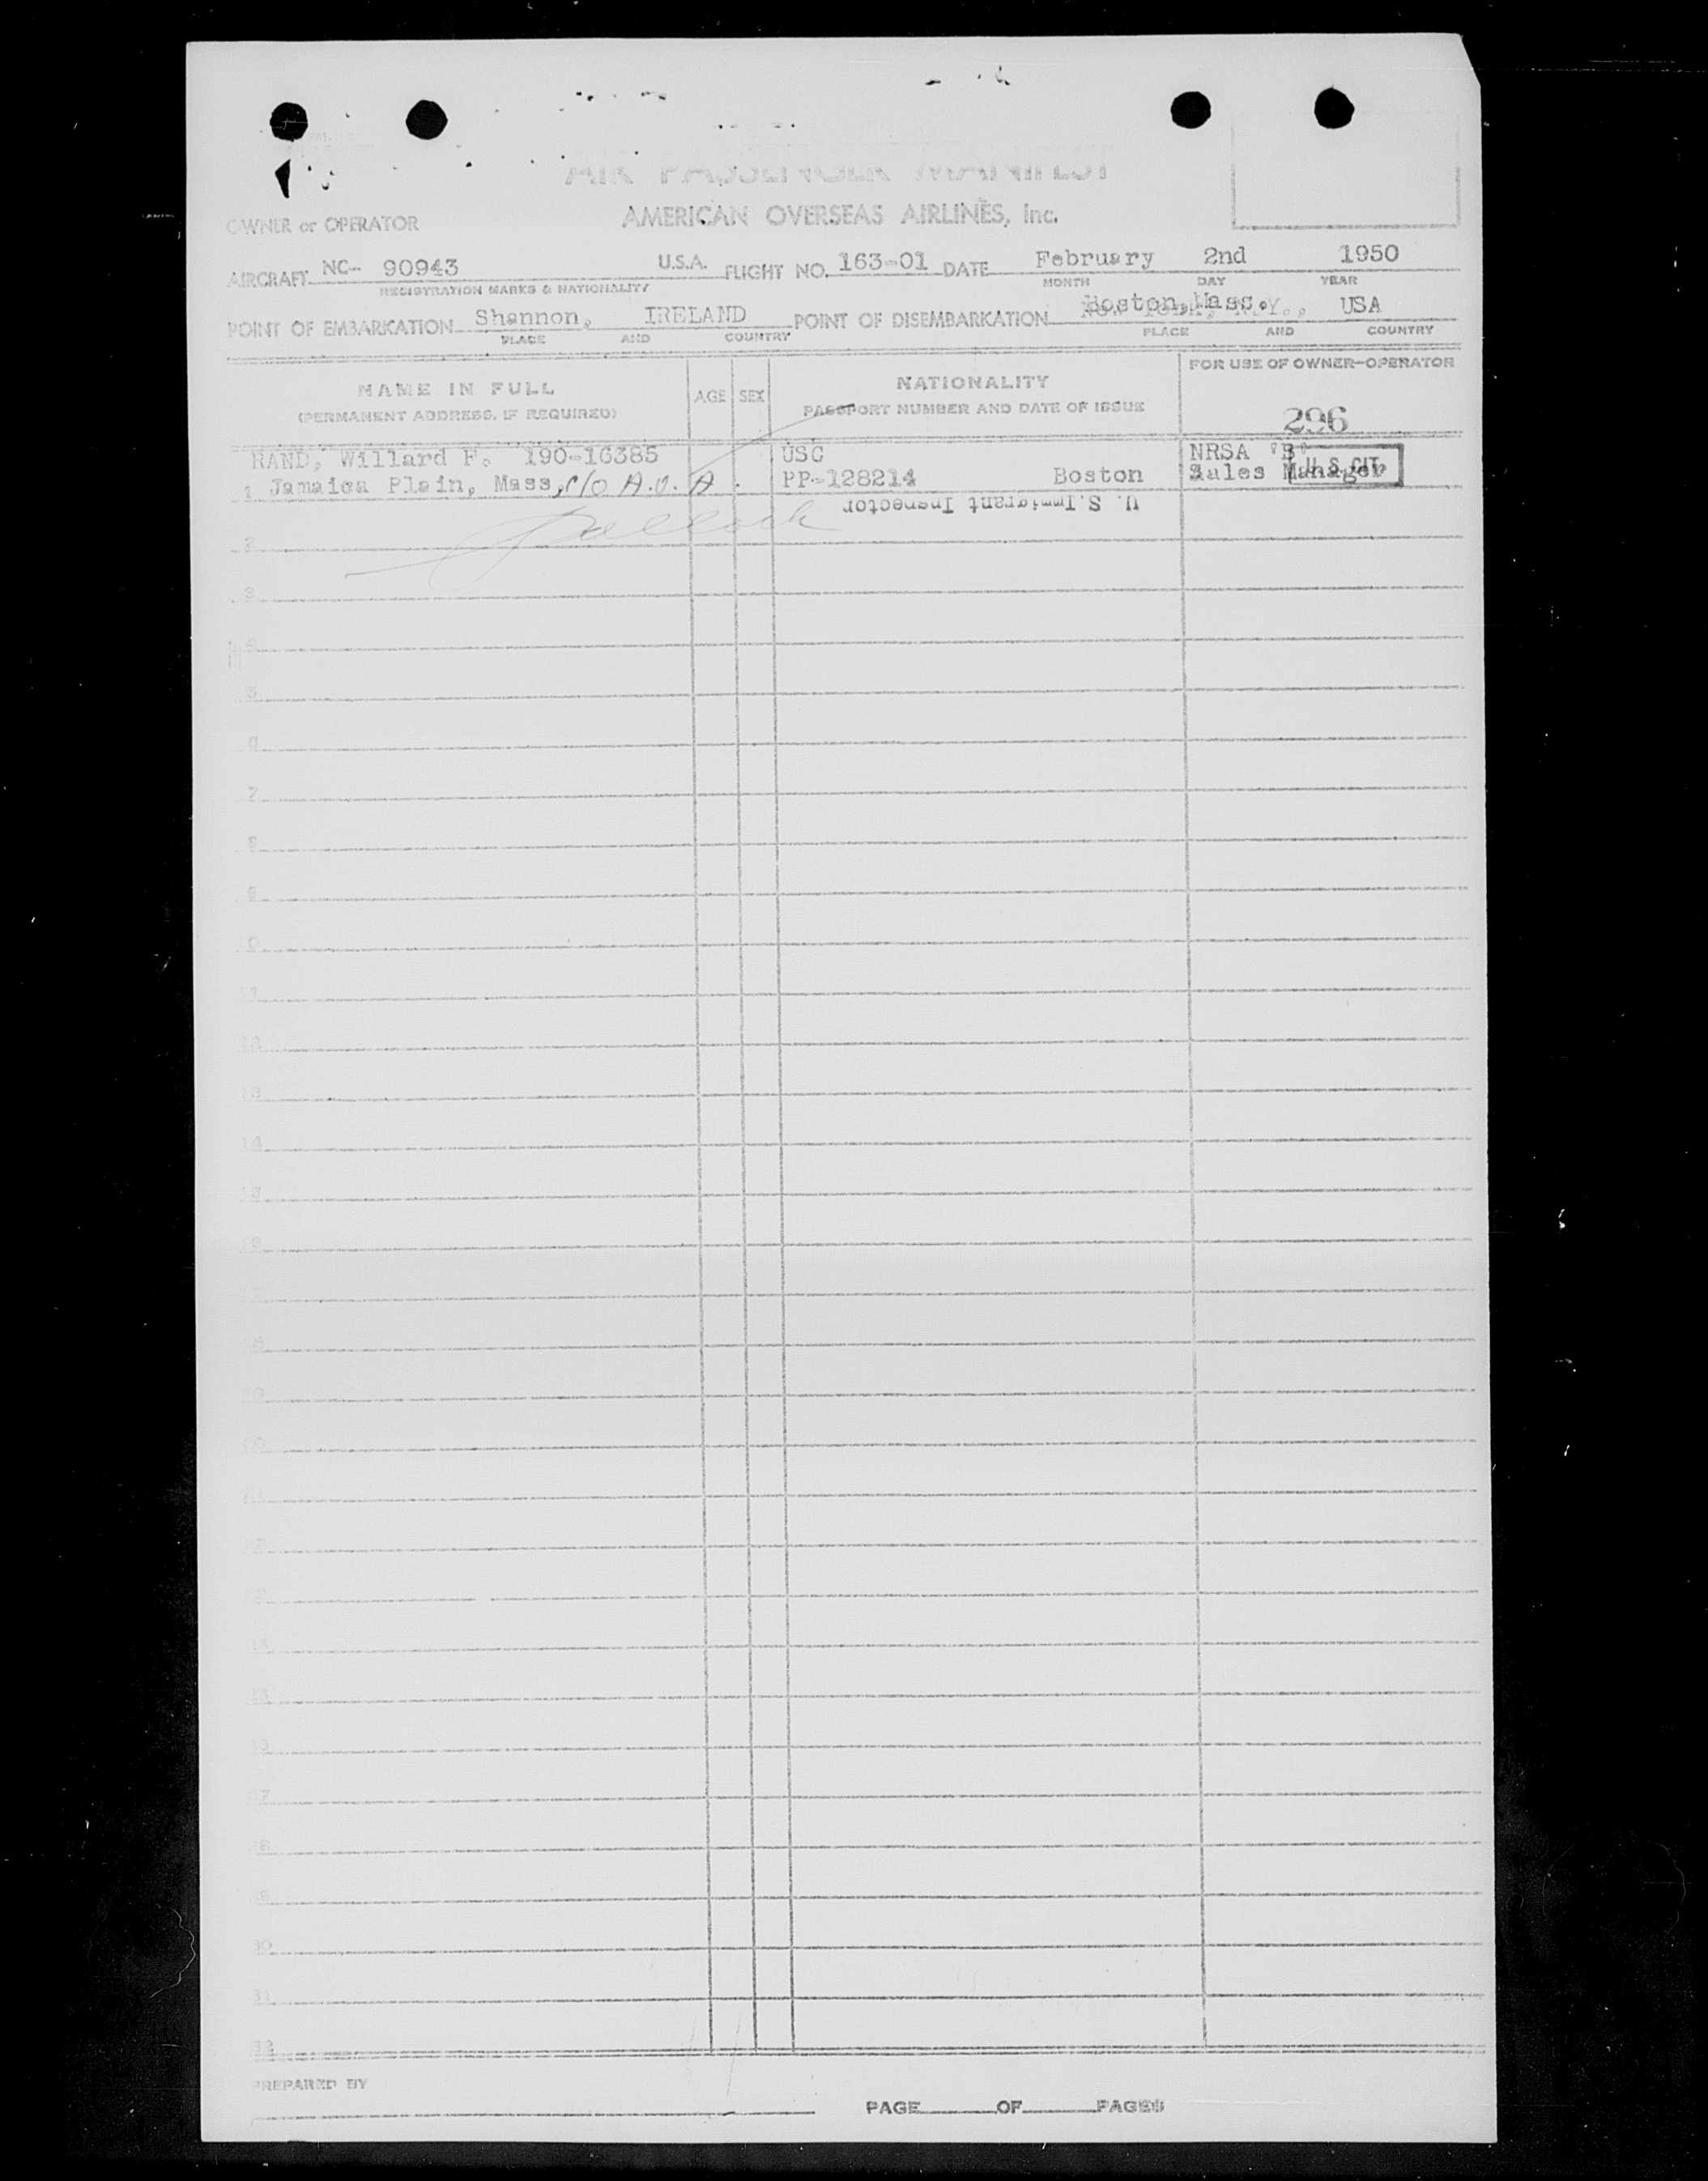 AIR PASSENGER MANIFEST
OWNER or OPERATOR AMERICAN OVERSEAS AIRLINES, Inc.
AIRCRAFT NC- 90943 U.S.A. FLIGHT NO. 163-01 DATE February 2nd 1950
REGISTRATION MARKS & NATIONALITY MONTH DAY YEAR
POINT OF EMBARKATION Shannon, IRELAND POINT OF DISEMBARKATION Boston, Mass. USA
PLACE AND COUNTRY PLACE AND COUNTRY
NAME IN FULL AGE SEX NATIONALITY FOR USE OF OWNER-OPERATOR
(PERMANENT ADDRESS, IF REQUIRED) PASSPORT NUMBER AND DATE OF ISSUE
296
RAND, Willard F. 190-16385 USC NRSA "B"
1 Jamaica Plain, Mass, c/o A.O.A. PP-128214 Boston Sales Manager U.S. CIT.
U. S. Immigrant Inspector
2
3
4
5
6
7
8
9
10
11
12
13
14
15
16
18
19
20
30
31
32
PREPARED BY
PAGE OF PAGES